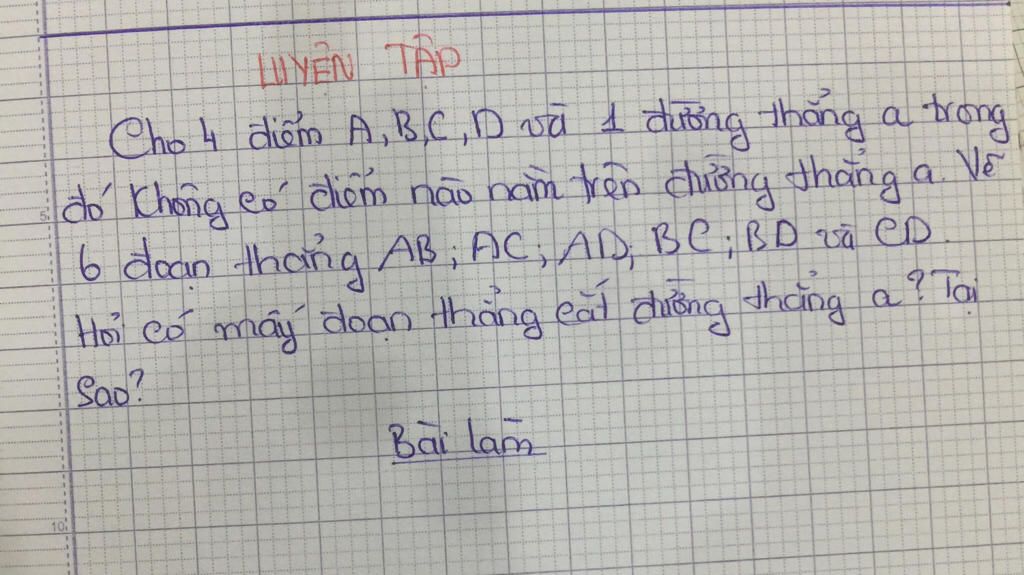 LUYỆN TẬP
Cho 4 điểm A, B, C, D và 1 đường thẳng a trong
đó không có điểm nào nằm trên đường thẳng a. Vẽ
6 đoạn thẳng AB; AC; AD; BC; BD và CD.
Hỏi có mấy đoạn thẳng cắt đường thẳng a? Tại
sao?
Bài làm
5
10